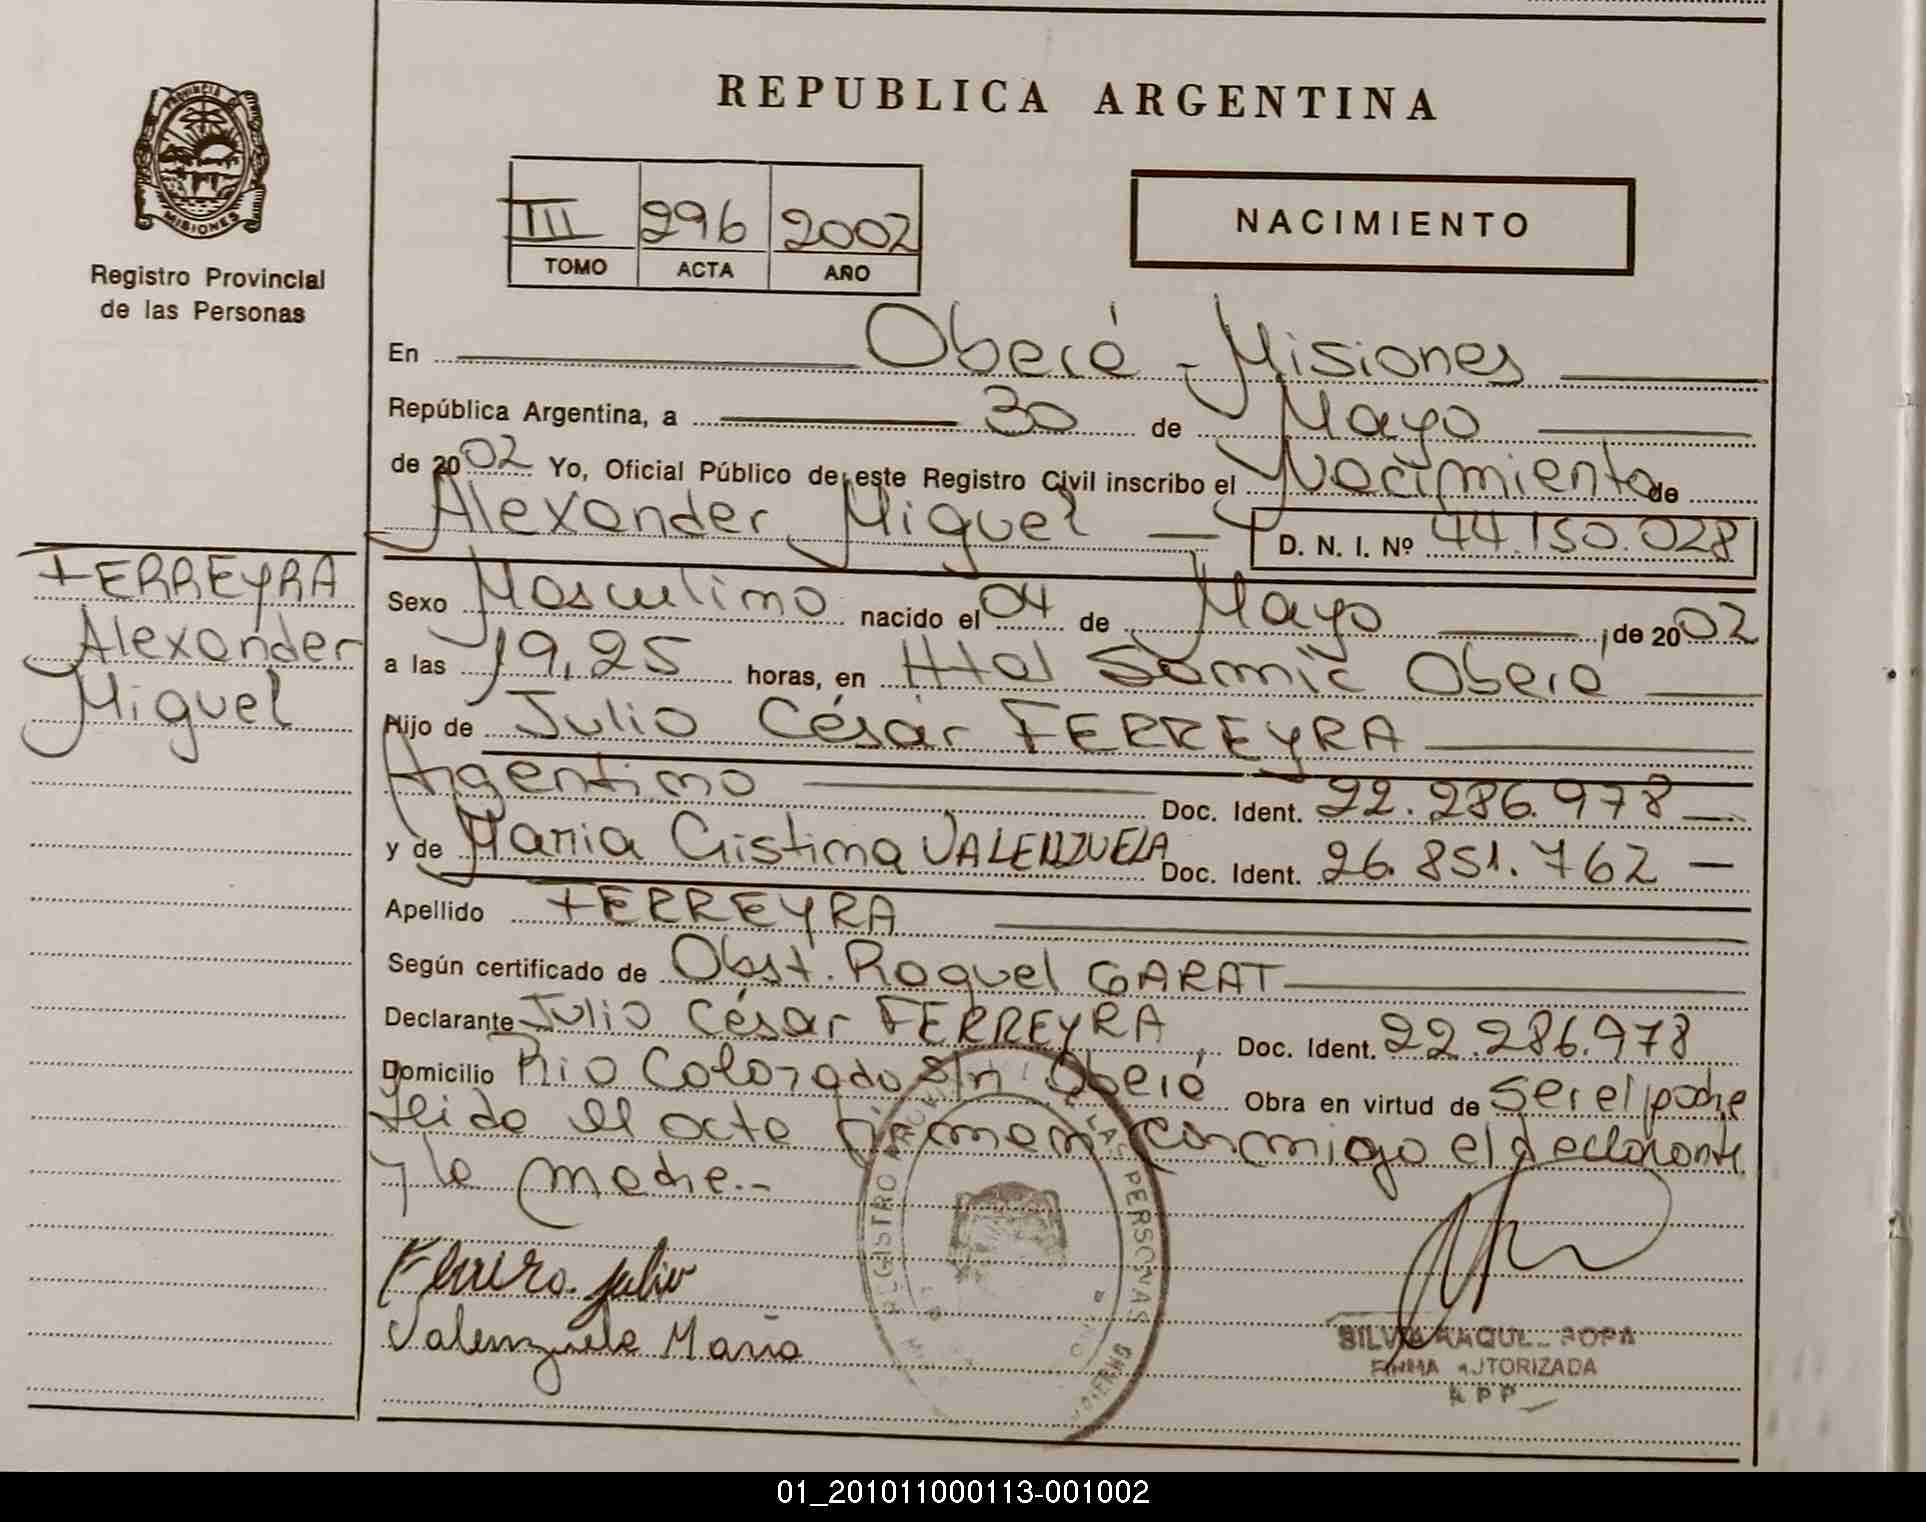 REPUBLICA ARGENTINA
PROVINCIA DE
MISIONES
Registro Provincial
de las Personas
III 296 2002
TOMO ACTA AÑO
NACIMIENTO
En Oberá - Misiones
República Argentina, a 30 de Mayo
de 2002 Yo, Oficial Público de este Registro Civil inscribo el Nacimiento de
Alexander Miguel D. N. I. Nº 44.150.028
FERREYRA
Alexander
Miguel
Sexo Masculino nacido el 04 de Mayo, de 2002
a las 19,25 horas, en Htal Samic Oberá
Hijo de Julio César FERREYRA
Argentino Doc. Ident. 22.286.978
y de Maria Cristina VALENZUELA Doc. Ident. 26.851.762
Apellido FERREYRA
Según certificado de Obst. Raquel GARAT
Declarante Julio César FERREYRA, Doc. Ident. 22.286.978
Domicilio Rio Colorado s/n: Oberá Obra en virtud de ser el padre
Leida el acta firman conmigo el declarante
y la madre.-
REGISTRO PERSONAS
julio
Valenzuela Maria
FIRMA AUTORIZADA
01_201011000113-001002